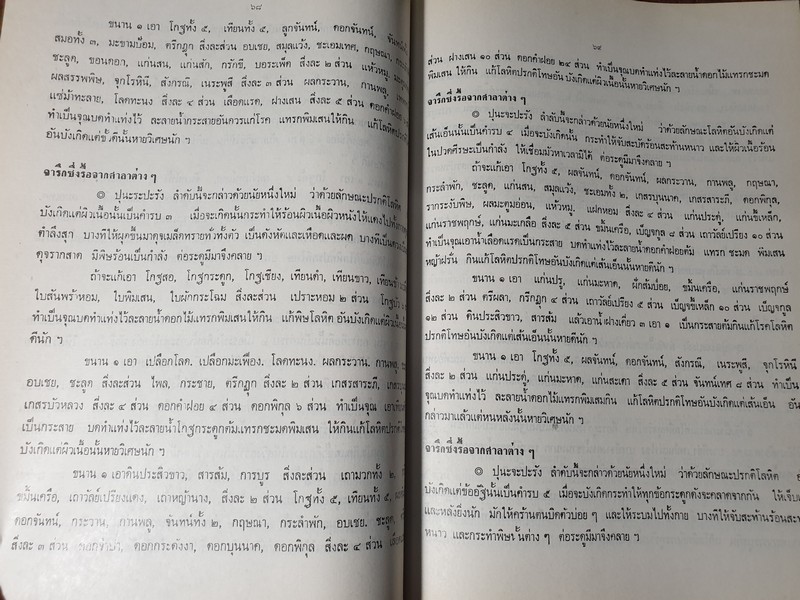 ๖๘
ขนาน ๑ เอา โกฐทั้ง ๕, เทียนทั้ง ๕, ลูกจันทน์, ดอกจันทน์,
สมอทั้ง ๓, มะขามป้อม, ตรีกฏุก สิ่งละส่วน อบเชย, สมุลแว้ง, ชะเอมเทศ, กฤษณา,
ชะลูด, ขอนดอก, แก่นสน, แก่นสัก, กรักขี, บอระเพ็ด สิ่งละ ๒ ส่วน แห้วหมู,
ผลสรรพพิษ, จุกโรหินี, สังกรณี, เนระพูสี สิ่งละ ๓ ส่วน ผลกระวาน, กานพลู,
แซ่ม้าทะลาย, โลดทะนง สิ่งละ ๔ ส่วน เลือดแรด, ฝางเสน สิ่งละ ๕ ส่วน ดอกคำฝอย
ทำเป็นจุณบดทำแท่งไว้ ละลายน้ำกระสายอันควรแก่โรค แทรกพิมเสนให้กิน แก้โลหิตปรกติโทษ
อันบังเกิดแต่ขั้วดีนั้นหายวิเศษนัก ฯ
จารึกซึ่งรื้อจากศาลาต่าง ๆ
๏ ปุนะจะปะรัง ลำดับนี้จะกล่าวด้วยนัยหนึ่งใหม่ ว่าด้วยลักษณะปรกติโลหิต
บังเกิดแต่ผิวเนื้อนั้นเป็นคำรบ ๓ เมื่อจะเกิดนั้นกระทำให้ร้อนผิวเนื้อผิวหนังให้แดงไปทั้งกาย
ตำลึงสุก บางทีให้ผุดขึ้นมาดุจเมล็ดทรายทั่วทั้งตัว เป็นดังหัดและเหือดและผด บางทีเป็น
ดุจรากสาด มีพิษร้อนเป็นกำลัง ต่อระดูมีมาจึงคลาย ฯ
ถ้าจะแก้เอา โกฐสอ, โกฐกระดูก, โกฐเชียง, เทียนดำ, เทียนขาว,
ใบสันพร้าหอม, ใบพิมเสน, ใบผักกระโฉม สิ่งละส่วน เปราะหอม ๒ ส่วน
ทำเป็นจุณบดทำแท่งไว้ละลายน้ำดอกไม้แทรกพิมเสนให้กิน แก้พิษโลหิตอันบังเกิดแต่ผิวเนื้อ
ดีนัก ฯ
ขนาน ๑ เอา เปลือกโลด. เปลือกมะเฟือง. โลดทะนง. ผลกระวาน. กานพลู,
อบเชย, ชะลูด สิ่งละส่วน ไพล, กระชาย, ตรีกฏุก สิ่งละ ๒ ส่วน เกสรสารภี,
เกสรบัวหลวง สิ่งละ ๔ ส่วน ดอกคำฝอย ๔ ส่วน ดอกพิกุล ๖ ส่วน ทำเป็นจุณ
เป็นกระสาย บดทำแท่งไว้ละลายน้ำโกฐกระดูกต้มแทรกชะมดพิมเสน ให้กินแก้โลหิตปรกติ
บังเกิดแต่ผิวเนื้อนั้นหายวิเศษนัก ฯ
ขนาน ๑ เอาดินประสิวขาว, สารส้ม, การบูร สิ่งละส่วน เถามวกทั้ง ๒.
ขมิ้นเครือ, เถาวัลย์เปรียงแดง, เถาหญ้านาง, สิ่งละ ๒ ส่วน โกฐทั้ง ๕, เทียนทั้ง ๕,
ดอกจันทน์, กระวาน, กานพลู, จันทน์ทั้ง ๒, กฤษณา, กระลำพัก, อบเชย. ชะลูด,
สิ่งละ ๓ ส่วน ดอกจำปา, ดอกกระดังงา, ดอกบุนนาค, ดอกพิกุล สิ่งละ ๔ ส่วน
๖๙
ส่วน ฝางเสน ๑๐ ส่วน ดอกคำฝอย ๒๔ ส่วน ทำเป็นจุณบดทำแท่งไว้ละลายน้ำดอกไม้แทรกชะมด
พิมเสน ให้กิน แก้โลหิตปรกติโทษอันบังเกิดแต่ผิวเนื้อนั้นหายวิเศษนัก ฯ
จารึกซึ่งรื้อจากศาลาต่าง ๆ
๏ ปุนะจะปะรัง ลำดับนี้จะกล่าวด้วยนัยหนึ่งใหม่ ว่าด้วยลักษณะโลหิตอันบังเกิดแต่
เส้นเอ็นนั้นเป็นคำรบ ๔ เมื่อจะบังเกิดนั้น กระทำให้จับสะบัดร้อนสะท้านหนาว และให้ผิวเนื้อร้อน
ในปวดศีรษะเป็นกำลัง ให้เชื่อมมัวหาเวลามิได้ ต่อระดูมีมาจึงคลาย ฯ
ถ้าจะแก้เอา โกฐทั้ง ๕, ผลจันทน์, ดอกจันทน์, ผลกระวาน, กานพลู, กฤษณา,
กระลำพัก, ชะลูด, แก่นสน, สมุลแว้ง, ชะเอมทั้ง ๒, เกสรบุนนาค, เกสรสารภี, ดอกพิกุล,
รากระงับพิษ, ผลมะตูมอ่อน, แห้วหมู, แฝกหอม สิ่งละ ๔ ส่วน แก่นประดู่, แก่นขี้เหล็ก,
แก่นราชพฤกษ์, แก่นมะเกลือ สิ่งละ ๕ ส่วน ขมิ้นเครือ, เบญจกูล ๘ ส่วน เถาวัลย์เปรียง ๑๐ ส่วน
ทำเป็นจุณเอาน้ำเลือดแรดเป็นกระสาย บดทำแท่งไว้ละลายน้ำดอกคำฝอยต้ม แทรก ชะมด พิมเสน
หญ้าฝรั่น กินแก้โลหิตปรกติโทษอันบังเกิดแต่เส้นเอ็นนั้นหายดีนัก ฯ
ขนาน ๑ เอา แก่นปรู, แก่นมะหาด, ผักส้มป่อย, ขมิ้นเครือ, แก่นราชพฤกษ์
สิ่งละ ๒ ส่วน ตรีผลา, ตรีกฏุก ๔ ส่วน เถาวัลย์เปรียง ๕ ส่วน เบ็ญจขี้เหล็ก ๑๐ ส่วน เบ็ญจกูล
๑๒ ส่วน ดินประสิวขาว, สารส้ม แล้วเอาน้ำฝางเคี่ยว ๓ เอา ๑ เป็นกระสายต้มกินแก้โรคโลหิต
ปรกติโทษอันบังเกิดแต่เส้นเอ็นนั้นหายดีนัก ฯ
ขนาน ๑ เอา โกฐทั้ง ๕, ผลจันทน์, ดอกจันทน์, สังกรณี, เนระพูสี, จุกโรหินี
สิ่งละ ๒ ส่วน แก่นประดู่, แก่นมะหาด, แก่นสะเดา สิ่งละ ๕ ส่วน จันทน์เทศ ๘ ส่วน ทำเป็น
จุณบดทำแท่งไว้ ละลายน้ำดอกไม้แทรกพิมเสนกิน แก้โลหิตปรกติโทษอันบังเกิดแต่เส้นเอ็น อัน
กล่าวมาแล้วแต่หนหลังนั้นหายวิเศษนัก ฯ
จารึกซึ่งรื้อจากศาลาต่าง ๆ
๏ ปุนะจะปะรัง ลำดับนี้จะกล่าวด้วยนัยหนึ่งใหม่ ว่าด้วยลักษณะปรกติโลหิต
บังเกิดแต่ข้ออัฐินั้นเป็นคำรบ ๕ เมื่อจะบังเกิดกระทำให้ทุกข้อกระดูกดังจะคลาดจากกัน ให้เจ็บ
และหลังยิ่งนัก มักให้คร้านตนบิดตัวบ่อย ๆ และให้ระบมไปทั้งกาย บางทีให้จับสะท้านร้อนสะท้าน
หนาว และกระทำพิษนั้นต่าง ๆ ต่อระดูมีมาจึงคลาย ฯ